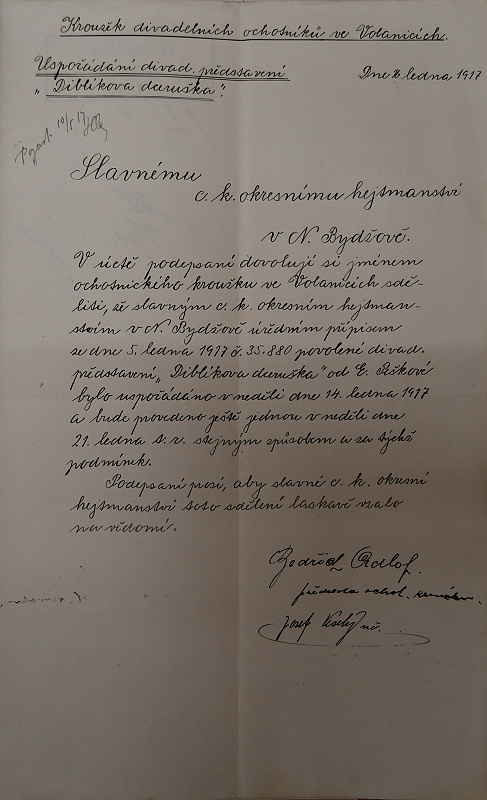 Kroužek divadelních ochotníků ve Volanicích.
Uspořádání divad. představení
Dne 16. ledna 1917
„Diblíkova dceruška".
Slavnému
c. k. okresnímu hejtmanství
v N. Bydžově.
V úctě podepsaní dovolují si jménem
ochotnického kroužku ve Volanicích sdě-
liti, že slavným c. k. okresním hejtman-
stvím v N. Bydžově úředním přípisem
ze dne 5. ledna 1917 č. 35.880 povolené divad.
představení „Diblíkova dceruška" od E. Peškové
bylo uspořádáno v neděli dne 14. ledna 1917
a bude provedeno ještě jednou v neděli dne
21. ledna t. r. stejným způsobem a za týchž
podmínek.
Podepsaní prosí, aby slavné c. k. okresní
hejtmanství toto sdělení laskavě vzalo
na vědomí.
předseda ochot.
Josef